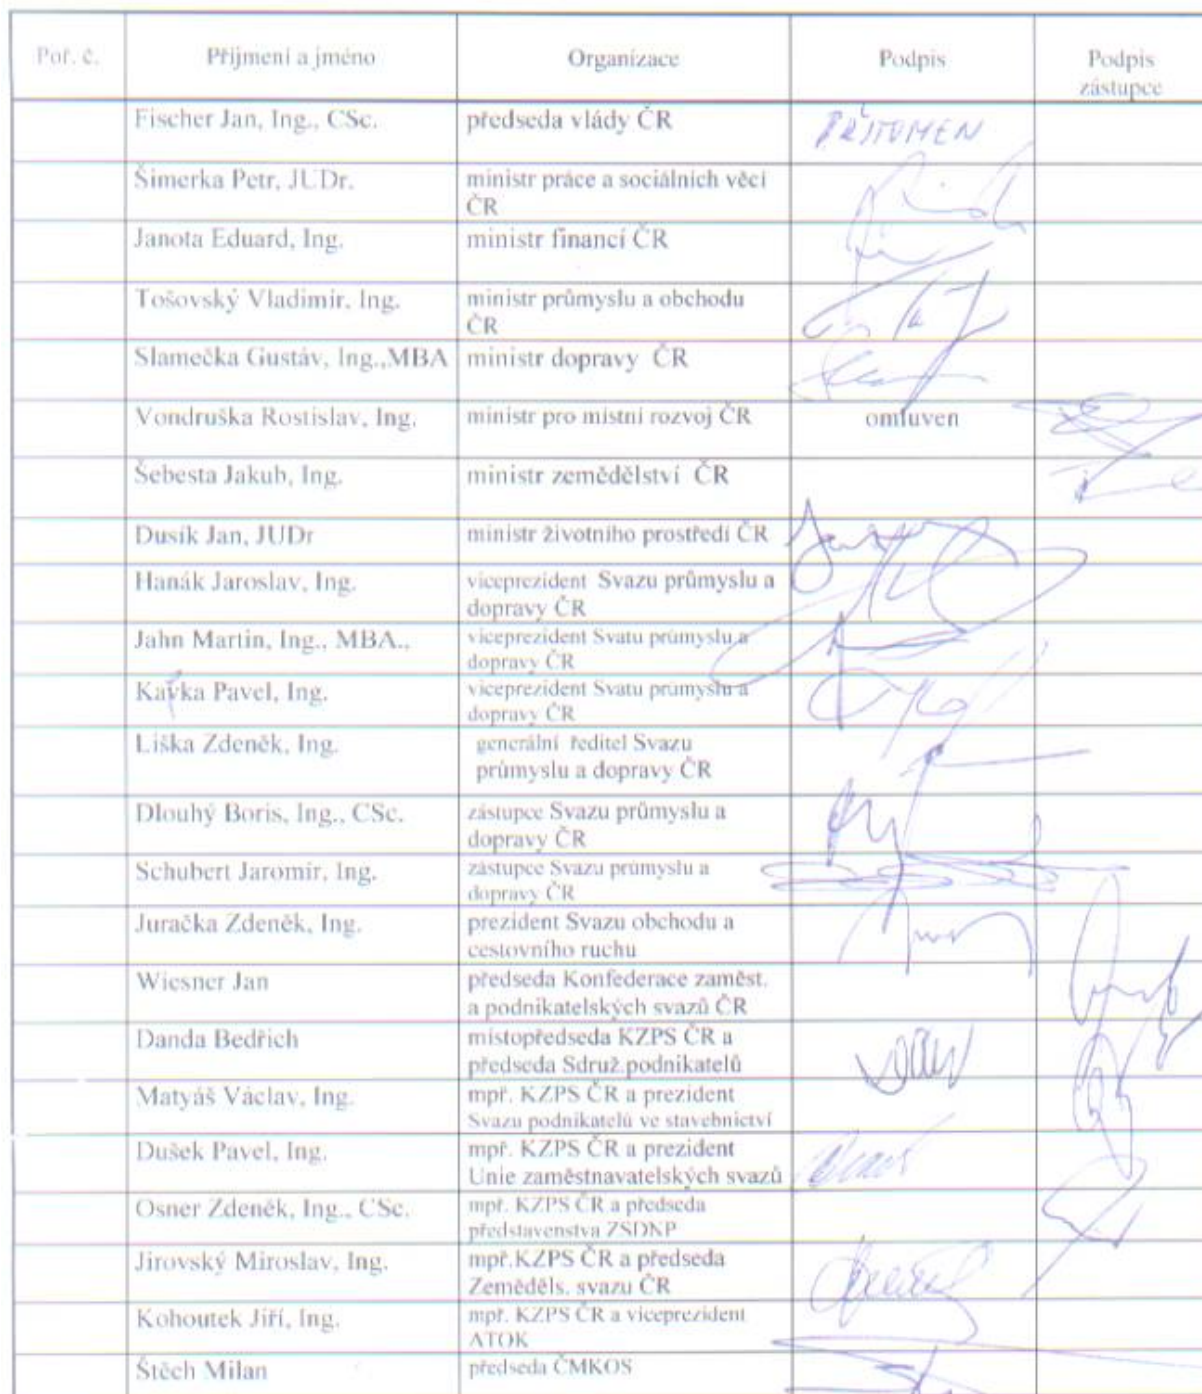 Poř. č. Příjmení a jméno Organizace Podpis Podpis
zástupce
Fischer Jan, Ing., CSc. předseda vlády ČR PŘÍTOMEN
Šimerka Petr, JUDr. ministr práce a sociálních věcí
ČR
Janota Eduard, Ing. ministr financí ČR
Tošovský Vladimír, Ing. ministr průmyslu a obchodu
ČR
Slamečka Gustáv, Ing.,MBA ministr dopravy ČR
Vondruška Rostislav, Ing. ministr pro místní rozvoj ČR omluven
Šebesta Jakub, Ing. ministr zemědělství ČR
Dusík Jan, JUDr ministr životního prostředí ČR
Hanák Jaroslav, Ing. viceprezident Svazu průmyslu a
dopravy ČR
Jahn Martin, Ing., MBA., viceprezident Svatu průmyslu a
dopravy ČR
Kafka Pavel, Ing. viceprezident Svatu průmyslu a
dopravy ČR
Liška Zdeněk, Ing. generální ředitel Svazu
průmyslu a dopravy ČR
Dlouhý Boris, Ing., CSc. zástupce Svazu průmyslu a
dopravy ČR
Schubert Jaromír, Ing. zástupce Svazu průmyslu a
dopravy ČR
Juračka Zdeněk, Ing. prezident Svazu obchodu a
cestovního ruchu
Wiesner Jan předseda Konfederace zaměst.
a podnikatelských svazů ČR
Danda Bedřich místopředseda KZPS ČR a
předseda Sdruž.podnikatelů
Matyáš Václav, Ing. mpř. KZPS ČR a prezident
Svazu podnikatelů ve stavebnictví
Dušek Pavel, Ing. mpř. KZPS ČR a prezident
Unie zaměstnavatelských svazů
Osner Zdeněk, Ing., CSc. mpř. KZPS ČR a předseda
představenstva ZSDNP
Jirovský Miroslav, Ing. mpř.KZPS ČR a předseda
Zeměděls. svazu ČR
Kohoutek Jiří, Ing. mpř. KZPS ČR a viceprezident
ATOK
Štěch Milan předseda ČMKOS